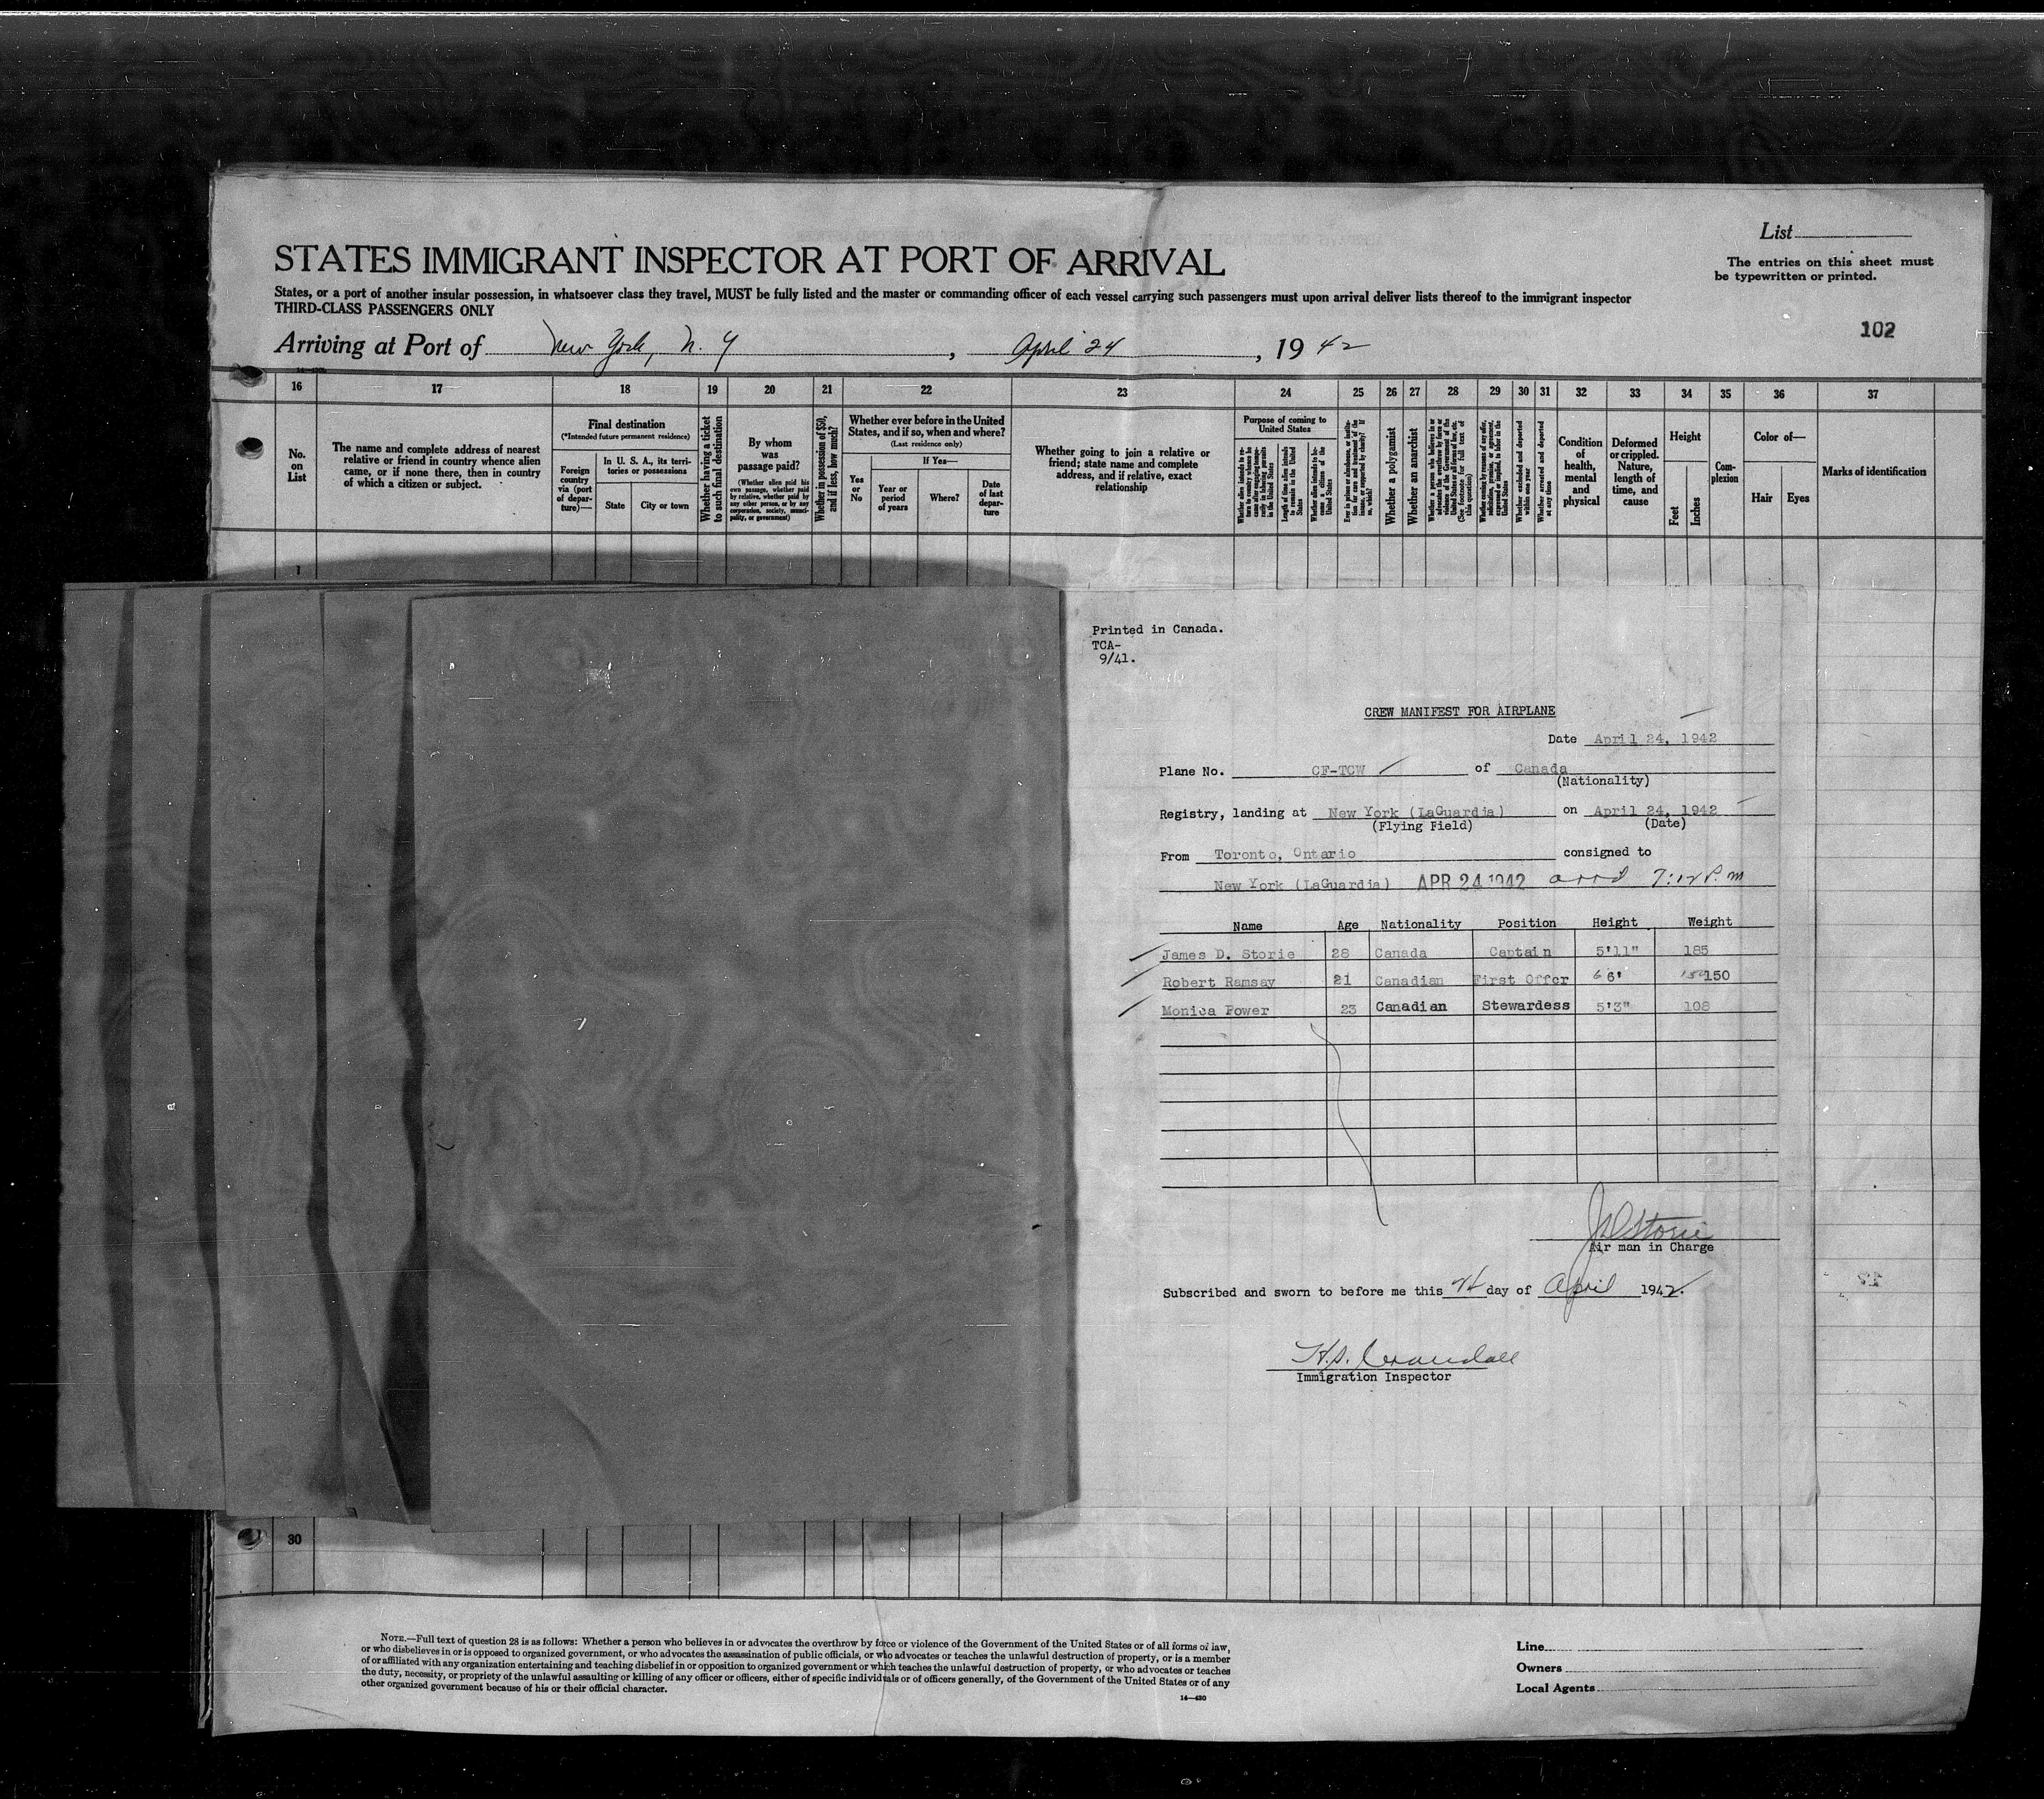 List
STATES IMMIGRANT INSPECTOR AT PORT OF ARRIVAL
The entries on this sheet must
be typewritten or printed.
States, or a port of another insular possession, in whatsoever class they travel, MUST be fully listed and the master or commanding officer of each vessel carrying such passengers must upon arrival deliver lists thereof to the immigrant inspector
THIRD-CLASS PASSENGERS ONLY
102
Arriving at Port of New York, N. Y , April 24 , 19 42
16 17 18 19 20 21 22 23 24 25 26 27 28 29 30 31 32 33 34 35 36 37
No.
on
List
The name and complete address of nearest
relative or friend in country whence alien
came, or if none there, then in country
of which a citizen or subject.
Final destination
(*Intended future permanent residence)
Foreign
country
via (port
of depar-
ture)—
In U. S. A., its terri-
tories or possessions
State
City or town
Whether having a ticket
to such final destination
By whom
was
passage paid?
(Whether alien paid his
own passage, whether paid
by relative, whether paid by
any other person, or by any
corporation, society, munici-
pality, or government)
Whether in possession of $50,
and if less, how much?
Whether ever before in the United
States, and if so, when and where?
(Last residence only)
Yes
or
No
If Yes—
Year or
period
of years
Where?
Date
of last
depar-
ture
Whether going to join a relative or
friend; state name and complete
address, and if relative, exact
relationship
Purpose of coming to
United States
Length of time alien intends
to remain in the United
States
Whether alien intends to be-
come a citizen of the
United States
Whether a polygamist
Whether an anarchist
Whether excluded and deported
within one year
Whether arrested and deported
at any time
Condition
of
health,
mental
and
physical
Deformed
or crippled.
Nature,
length of
time, and
cause
Height
Feet
Inches
Com-
plexion
Color of—
Hair
Eyes
Marks of identification
1
Printed in Canada.
TCA-
9/41.
CREW MANIFEST FOR AIRPLANE
Date April 24, 1942
Plane No. CF-TCW of Canada
(Nationality)
Registry, landing at New York (LaGuardia) on April 24, 1942
(Flying Field) (Date)
From Toronto, Ontario consigned to
New York (LaGuardia) APR 24 1942 arrd 7:12 P.m
Name Age Nationality Position Height Weight
James D. Storie 28 Canada Captain 5'11" 185
Robert Ramsay 21 Canadian First Offcr 6 6' 150 150
Monica Power 23 Canadian Stewardess 5'3" 108
JDStorie
Air man in Charge
Subscribed and sworn to before me this 24 day of April 1942.
H.S. Crandall
Immigration Inspector
30
NOTE.—Full text of question 28 is as follows: Whether a person who believes in or advocates the overthrow by force or violence of the Government of the United States or of all forms of law,
or who disbelieves in or is opposed to organized government, or who advocates the assassination of public officials, or who advocates or teaches the unlawful destruction of property, or is a member
of or affiliated with any organization entertaining and teaching disbelief in or opposition to organized government or which teaches the unlawful destruction of property, or who advocates or teaches
the duty, necessity, or propriety of the unlawful assaulting or killing of any officer or officers, either of specific individuals or of officers generally, of the Government of the United States or of any
other organized government because of his or their official character.
14—430
Line
Owners
Local Agents